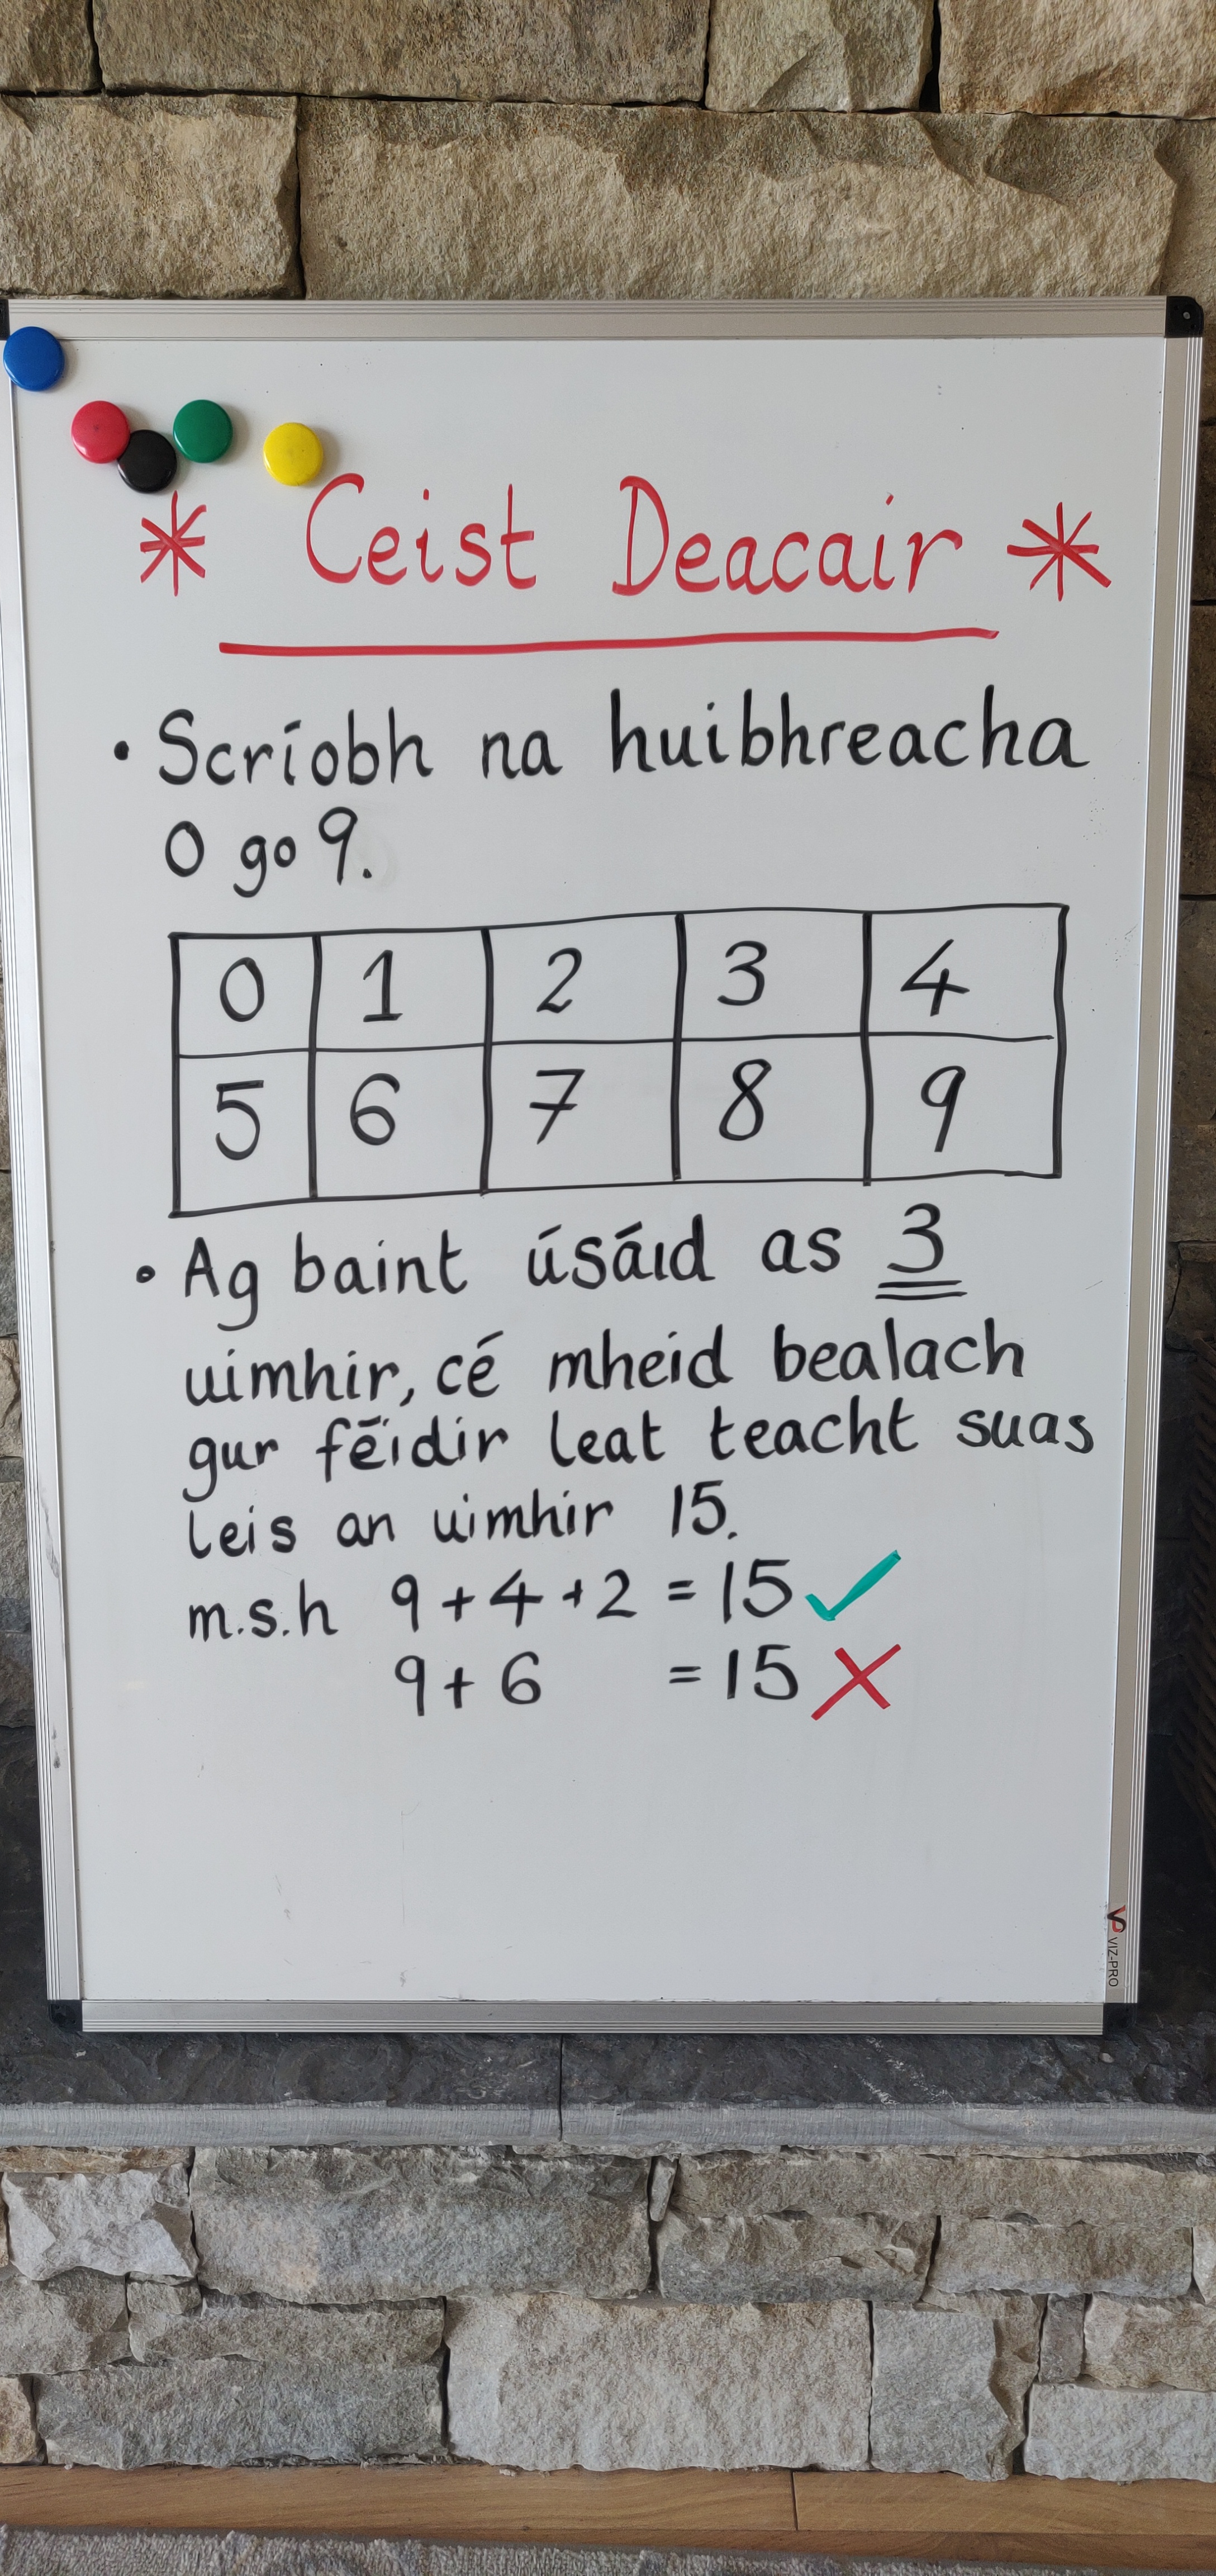 * Ceist Deacair *
• Scríobh na huibhreacha
0 go 9.
0 1 2 3 4
5 6 7 8 9
• Ag baint úsáid as 3
uimhir, cé mheid bealach
gur féidir leat teacht suas
leis an uimhir 15.
m.s.h 9 + 4 + 2 = 15 ✓
9 + 6 = 15 X
VIZ-PRO